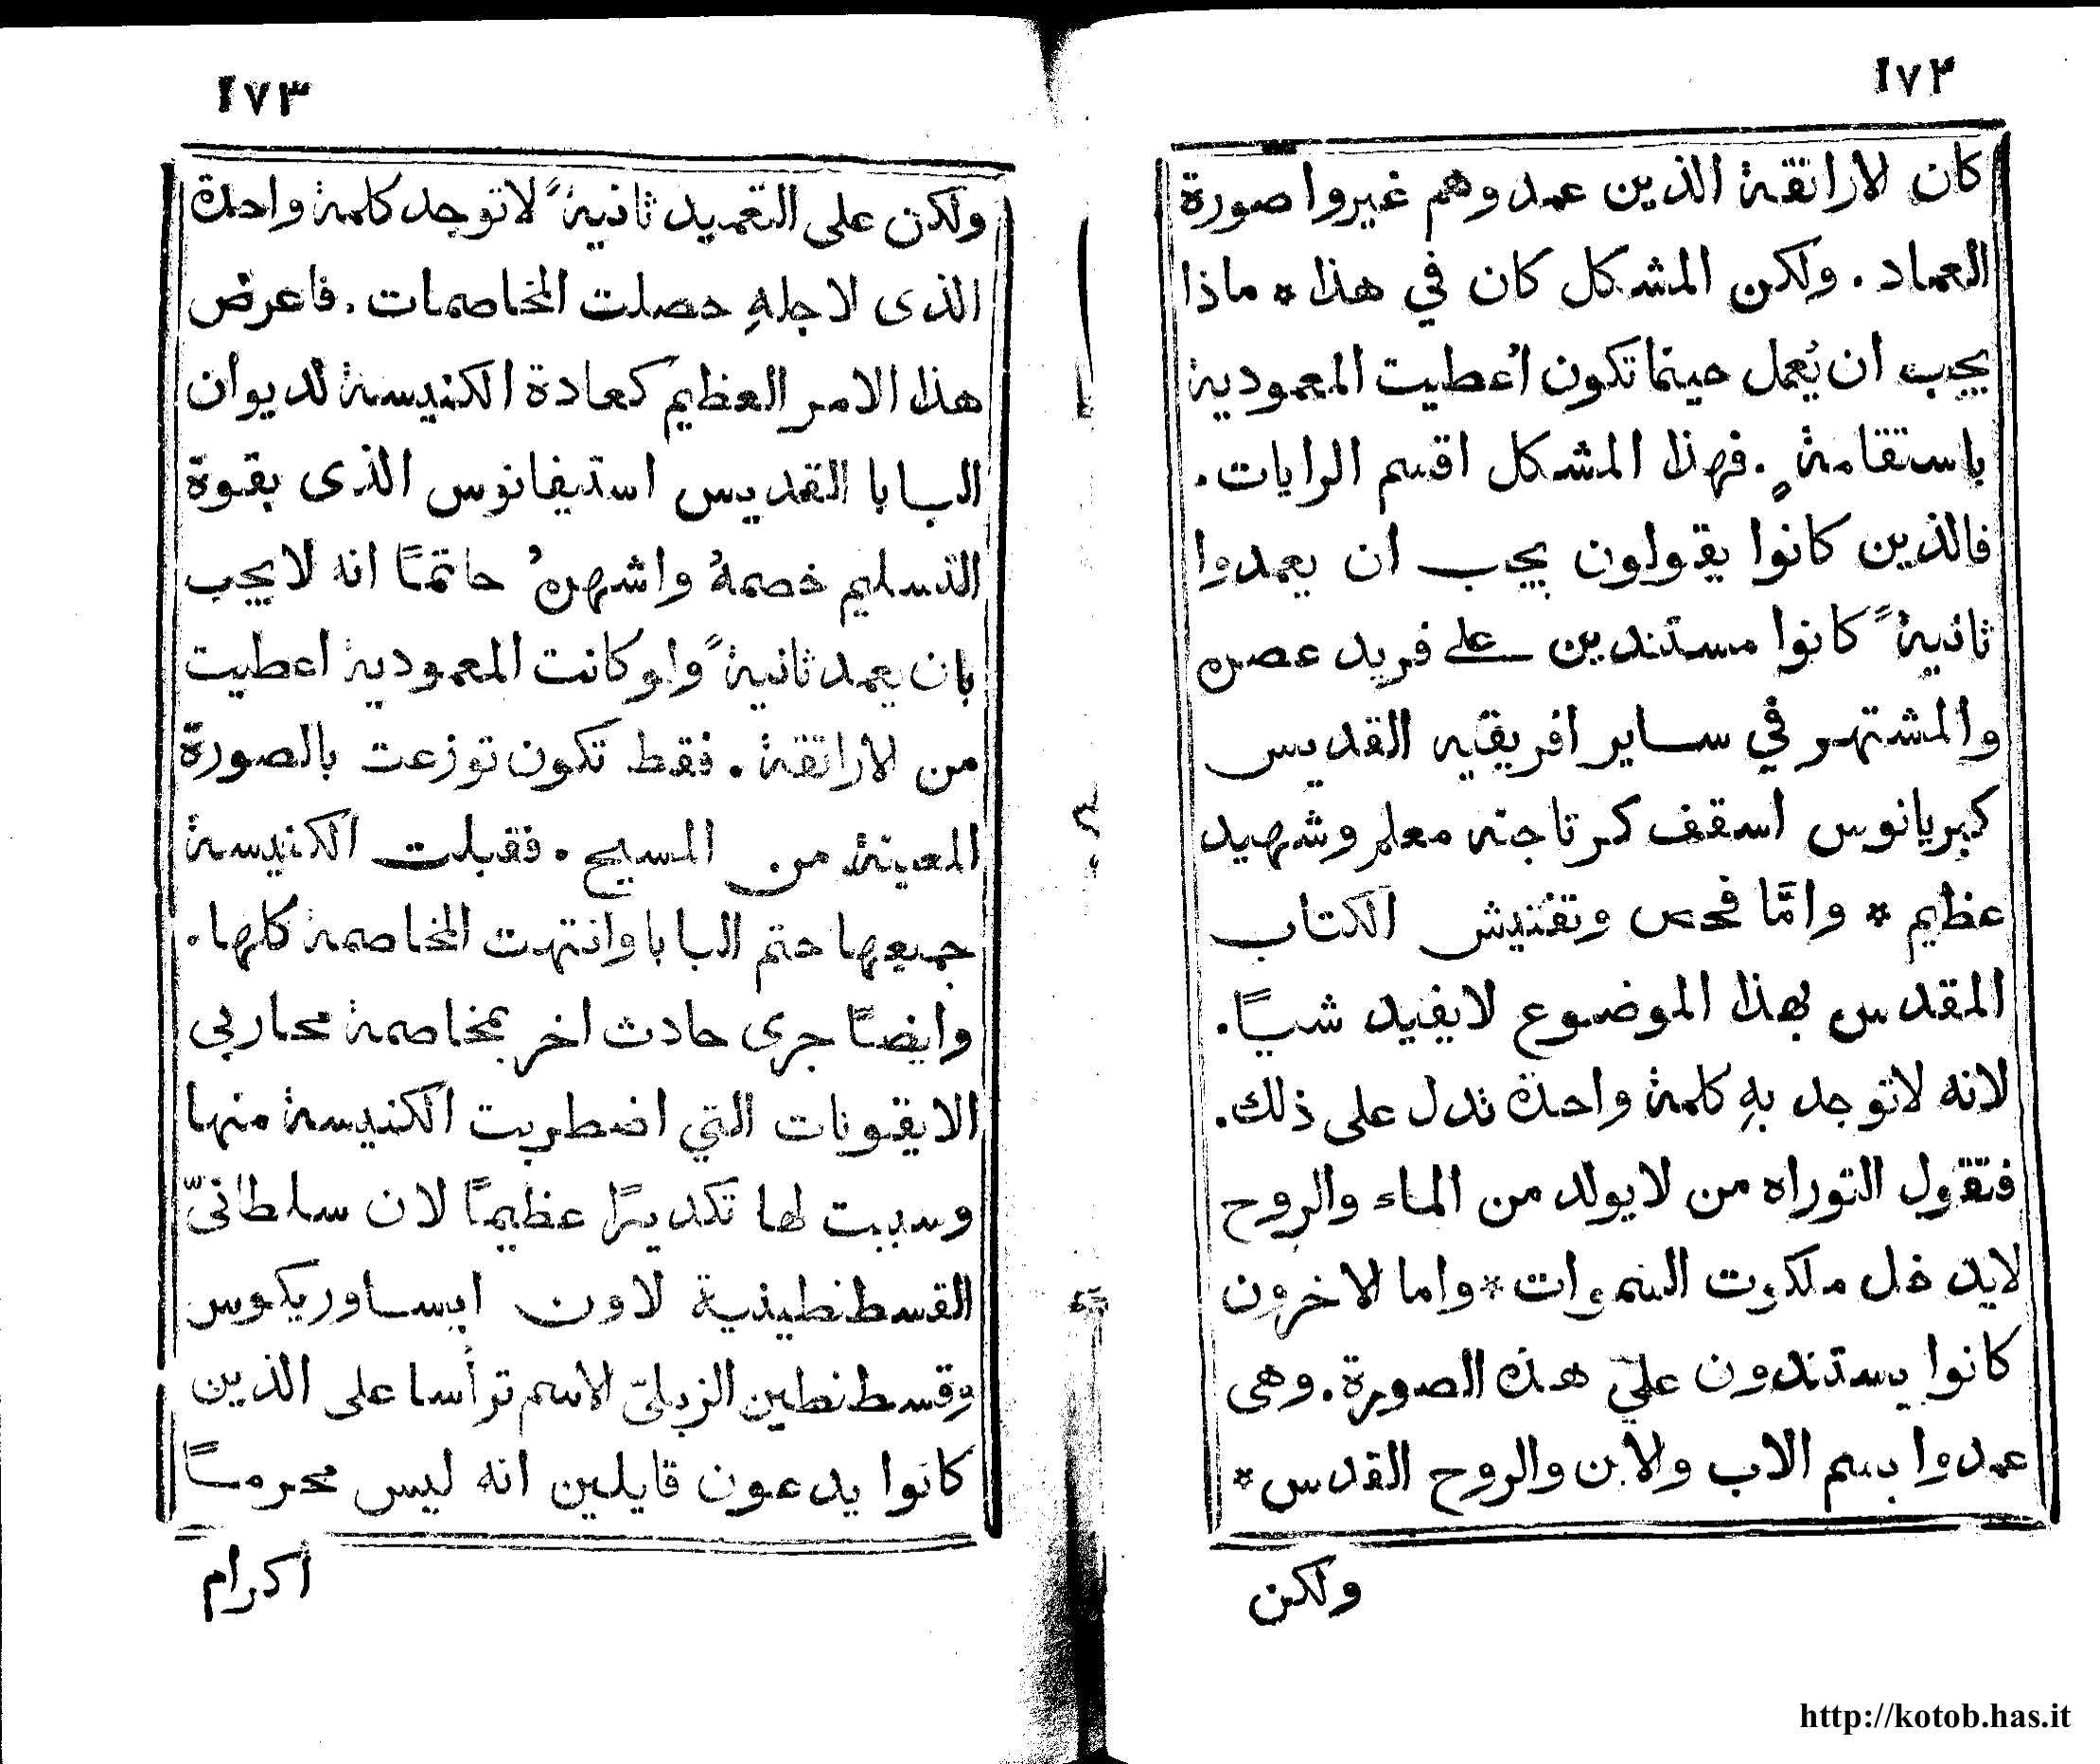 ١٧٢
كان لاراتقة الذين عمدوهم غيروا صورة
العماد . ولكن المشكل كان في هذا * ماذا
يجب ان يُعمل حينما تكون اُعطيت المعمودية
باستقامةٍ . فهذا المشكل اقسم الرايات .
فالذين كانوا يقولون يجب ان يعمدوا
ثانيةً كانوا مستندين على فريد عصره
والمشتهر في ساير افريقيه القديس
كبريانوس اسقف كرتاجنه معلم وشهيد
عظيم * وامَّا فحص وتفتيش الكتاب
المقدس بهذا الموضوع لايفيد شياً .
لانه لاتوجد بهِ كلمة واحدة تدل على ذلك .
فتقول التوراه من لايولد من الماء والروح
لايدخل ملكوت السموات * واما لاخرون
كانوا يستندون على هذه الصورة . وهى
عمدوا بسم الاب ولابن والروح القدس *
ولكن
١٧٣
ولكن على التعميد ثانيةً لاتوجد كلمة واحدة
الذى لاجلهِ حصلت المخاصمات . فاعرض
هذا الامر العظيم كعادة الكنيسة لديوان
البابا القديس استيفانوس الذى بقوة
التسليم خصمهُ واشهرهُ حاتمًا انه لايجب
بان يعمد ثانيةً ولو كانت المعمودية اعطيت
من لاراتقة . فقط تكون توزعت بالصورة
المعينة من المسيح . فقبلت الكنيسة
جميعها حتم البابا وانتهت المخاصمة كلها .
وايضًا جرى حادث اخر بمخاصمة محاربي
الايقونات التي اضطربت الكنيسة منها
وسببت لها تكديرًا عظيمًا لان سلطانيّ
القسطنطينية لاون ايساوريكوس
وقسطنطين الزبلىّ الاسم ترأسا على الذين
كانوا يدعون قايلين انه ليس محرومًا
أكرام
http://kotob.has.it